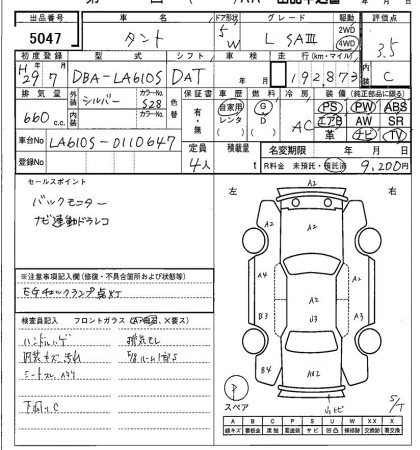 出品番号 車名 ドア形状 グレード 駆動 評価点
5047 タント 5 W L SAⅢ 2WD 4WD 3.5
初度登録 型式 シフト 車検 走行(km・マイル) 内装
H29 7 DBA-LA610S DAT 年 月 192873 C
排気量 外装 シルバー カラーNo. S28 色替 保証書 車歴 燃料 冷房 装備(純正部品に限る)
660 c.c. 内装 カラーNo. 有・無 自家用 レンタ G・D AC PS PW ABS
エアB AW SR
革 ナビ TV
車台No LA610S-0110647 定員 積載量 名変期限 年 月 日
登録No 4人 t R料金 未預託・預託済 9,200円
セールスポイント
バックモニター
ナビ連動ドラレコ
左 右
A2
A2
A2
A4 A2 A2
B3 U3 A3
B4
※注意事項記入欄(修復・不具合箇所および状態等)
EGチェックランプ点灯
検査員記入 フロントガラス
ハンドルハゲ
内装キズ汚れ
下廻りC
P
スペア
S/T
A B C P S U W X XX
線キズ 要板金 腐蝕 要塗装 サビ 凹凸 補修跡 要交換 交換済